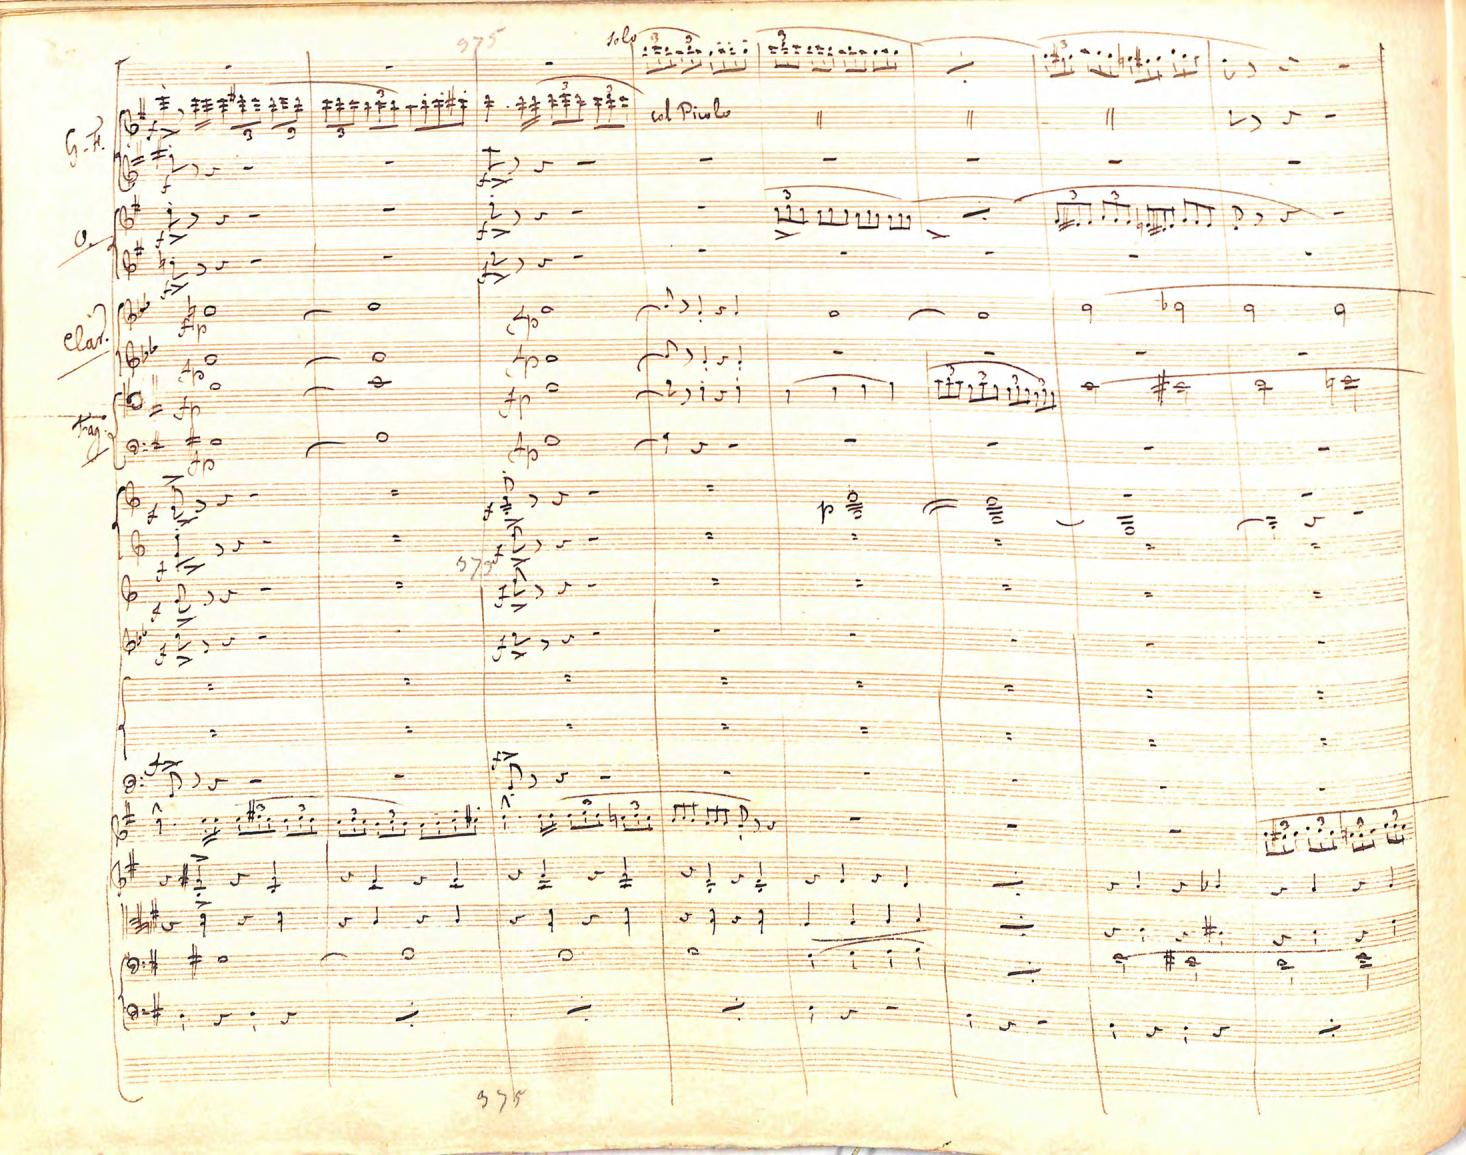 375
solo
G. F.
col Picolo
O.
Clar.
Fag.
375
375